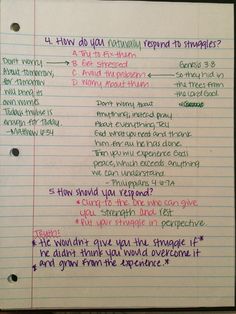 4. How do you naturally respond to struggles?
A. Try to Fix them
B. Get stressed
C. Avoid the problem
D. Worry about them
Don't worry
About tomorrow,
for tomorrow
will bring its
own worries
Today's trouble is
enough for today.
-Matthew 6:34
Genesis 3:8
So they hid in
the trees from
the Lord God.
Don't worry about
Anything; instead pray
About everything. Tell
God what you need and thank
him for all he has done.
Then you will experience God's
peace, which exceeds anything
we can understand.
-Philippians 4:6-7
5. How should you respond?
*Cling to the one who can give
you strength and rest
*Put your struggle in perspective.
Truth:
*He wouldn't give you the struggle if
he didn't think you would overcome it
and grow from the experience.*